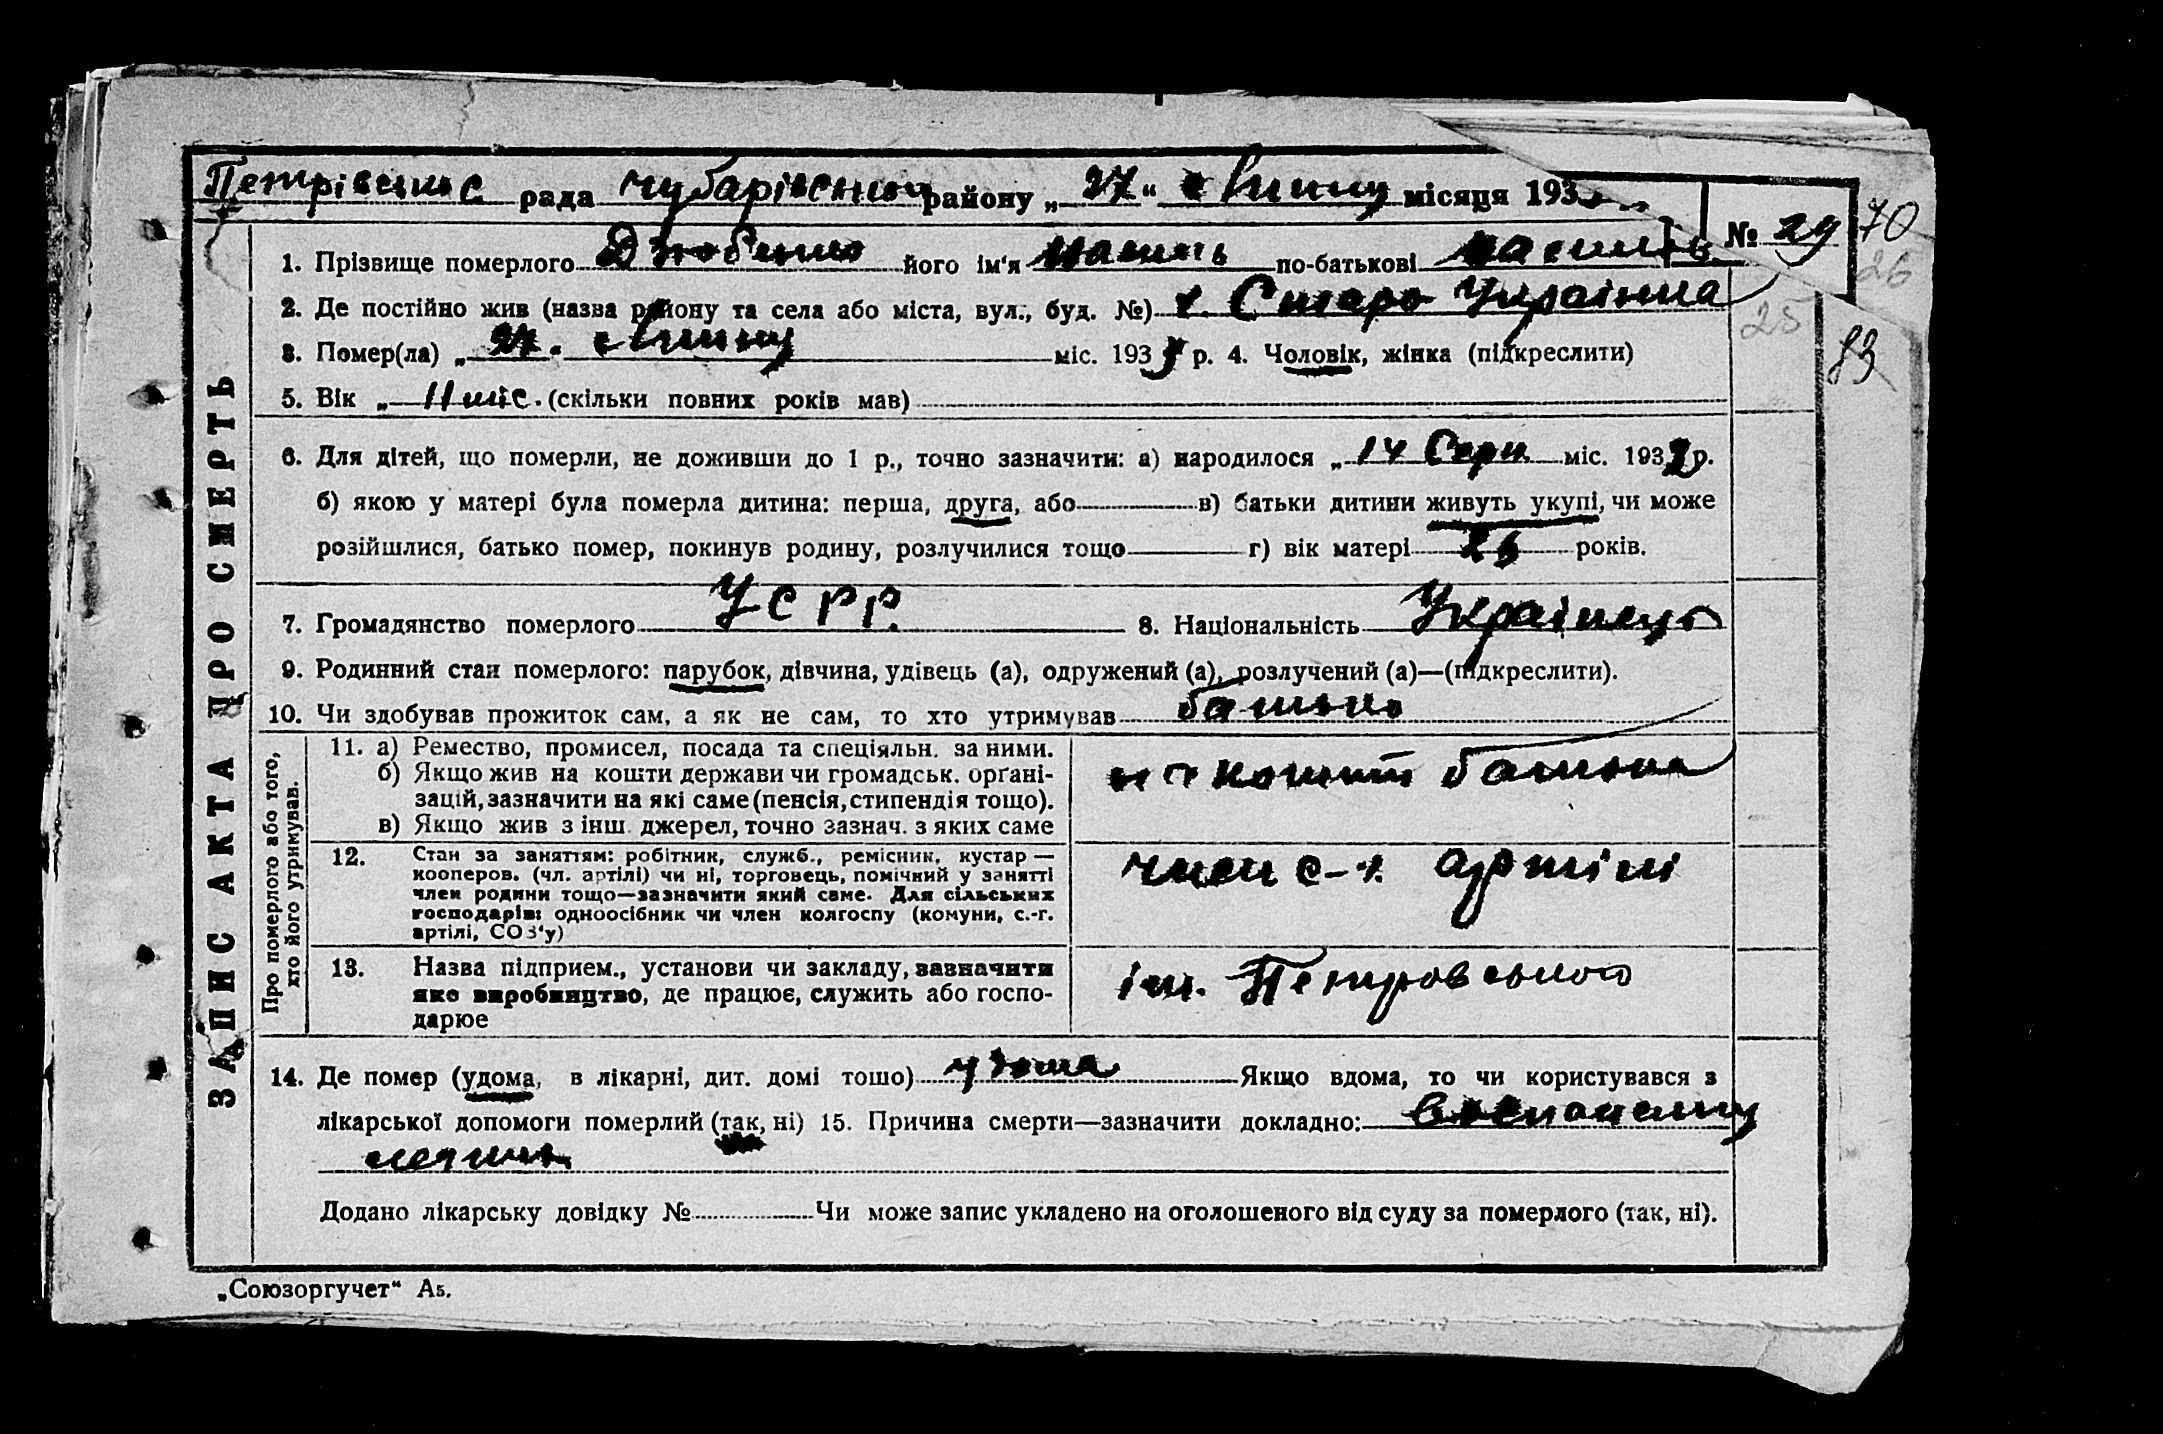 Петрівська рада Чубарівський району „27“ липцу місяця 193
№ 29 70
1. Прізвище померлого Дзюбенко його ім'я по-батькові
26
2. Де постійно жив (назва району та села або міста, вул., буд. №) х. Старо Українка
25
3. Помер(ла) „27. липцу міс. 1933 р. 4. Чоловік, жінка (підкреслити)
83
5. Вік „ 11 міс. (скільки повних років мав)
6. Для дітей, що померли, не доживши до 1 р., точно зазначити: а) народилося „14 Серп. міс. 1932 р.
б) якою у матері була померла дитина: перша, друга, або в) батьки дитини живуть укупі, чи може
розійшлися, батько помер, покинув родину, розлучилися тощо г) вік матері 26 років.
7. Громадянство померлого УСРР. 8. Національність Українець
9. Родинний стан померлого: парубок, дівчина, удівець (а), одружений (а), розлучений (а)—(підкреслити).
10. Чи здобував прожиток сам, а як не сам, то хто утримував батько
11. а) Ремество, промисел, посада та спеціяльн. за ними.
б) Якщо жив на кошти держави чи громадськ. орґані-
зацій, зазначити на які саме (пенсія, стипендія тощо).
в) Якщо жив з інш. джерел, точно зазнач. з яких саме
на кошти батька
12. Стан за заняттям: робітник, служб., ремісник, кустар —
кооперов. (чл. артілі) чи ні, торговець, помічний у занятті
член родини тощо—зазначити який саме. Для сільських
господарів: одноосібник чи член колгоспу (комуни, с.-г.
артілі, СОЗ'у)
член с-г. артілі
13. Назва підприєм., установи чи закладу, зазначити
яке виробництво, де працює, служить або госпо-
дарює
ім. Петровського
Про померлого або того,
хто його утримував.
14. Де помер (удома, в лікарні, дит. домі тощо) удома Якщо вдома, то чи користувався з
лікарської допомоги померлий (так, ні) 15. Причина смерти—зазначити докладно:
Додано лікарську довідку № Чи може запис укладено на оголошеного від суду за померлого (так, ні).
ЗАПИС АКТА ПРО СМЕРТЬ
„Союзоргучет“ А5.